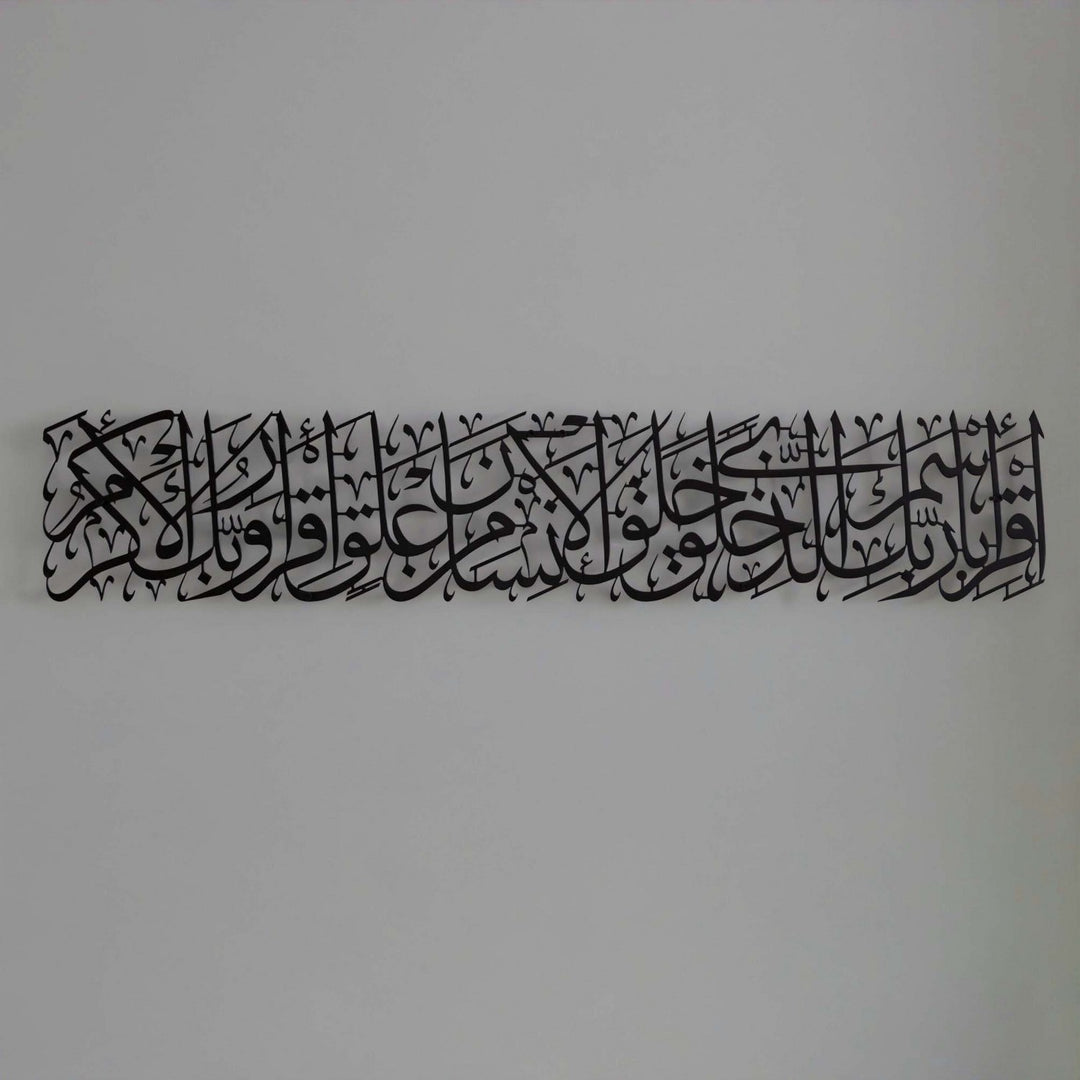 اقرأ باسم ربك الذي خلق خلق الإنسان من علق اقرأ وربك الأكرم